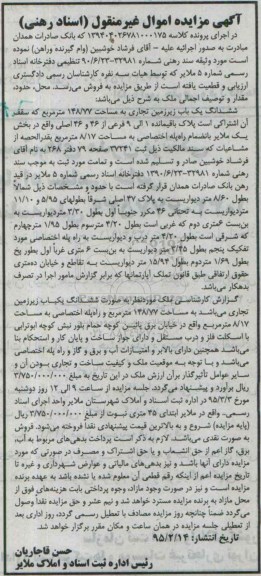 آگهی مزایده اموال غیرمنقول (اسناد رهنی)
در اجرای پرونده کلاسه ۱۳۹۴۰۴۰۲۶۷۸۱۰۰۰۱۷۵ که بانک صادرات همدان
مبادرت به صدور اجرائیه علیه - آقای فرشاد خوشبین (وام گیرنده وراهن) نموده
است مورد وثیقه سند رهنی شماره ۳۲۹۸۱-۹۰/۶/۲۳ تنظیمی دفترخانه اسناد
رسمی شماره ۵ ملایر که توسط هیات سه نفره کارشناسان رسمی دادگستری
ارزیابی و قطعیت یافته است از طریق مزایده به فروش می‌رسد. محل، حدود،
مقدار و توصیف اجمالی ملک به شرح ذیل می‌باشد:
ششدانگ یک باب زیرزمین تجاری به مساحت ۱۴۸/۷۷ مترمربع که
آن اشتراکی است پلاک باقیمانده ۱ الی ۹ فرعی از ۴۶ و ۴۶ اصلی واقع در بخش
یک ملایر بانضمام راه‌پله اختصاصی به مساحت ۸/۱۷ مترمربع بقدرالحصه از
مشاعیات که سند مالکیت ذیل ثبت ۳۷۲۴۱ صفحه ۷۹ دفتر ۲۶۸ به نام آقای
فرشاد خوشبین صادر و تسلیم شده است و تمامت مورد ثبت به موجب سند
رهنی شماره ۳۲۹۸۱-۱۳۹۰/۶/۲۳ دفترخانه اسناد رسمی شماره ۵ ملایر در قید
رهن بانک صادرات همدان قرار گرفته است با حدود و مشخصات ذیل شمالاً
بطول ۸/۶۰ متر دیواریست به پلاک ۴۷ اصلی شرقاً بطولهای ۵/۹۵ و ۱۱/۱۰
متردیواریست به تحتانی ۴۶ مکرر جنوباً اول بطول ۲/۳۰ متردیواریست به
بن‌بست ۶متری دوم که غربی است بطول ۴/۲۰ مترسوم بطول ۱/۹۵ مترچهارم
که شرقی است بطول ۴/۲۰ متر درب و دیواریست به راه پله اختصاصی مورد
تفکیک پنجم بطول ۲/۴۵ متردیواریست به بن‌بست ۶ متری غرباً اول بطور پخ
بطول ۱/۶۹ متردوم بطول ۱۵/۹۴ متر دیواریست به تقاطع و خیابان ده‌متری
حقوق ارتفاقی طبق قانون تملک آپارتمانها که برابر گزارش مامور اجرا در تصرف
مالک می‌باشد.
گزارش کارشناسی ملک موردنظر به صورت ششدانگ یکباب زیرزمین
تجاری می‌باشد به مساحت ۱۴۸/۷۷ مترمربع و راه‌پله اختصاصی به مساحت
۸/۱۷ مترمربع واقع در خیابان برق پائین کوچه حمام بلور نبش کوچه ابوترابی
با اسکلت فلز و درب مستقل و دارای جواز ساخت و پایان کار و استحکام بنا
می‌باشد. همچنین دارای بالابر و امتیازات آب و برق و گاز و راه پله اختصاصی
می‌باشد و با توجه به موقعیت ملک و کیفیت ساخت و تجاری بودن آن و
سایر عوامل تأثیرگذار برآن ارزش ملک در این تاریخ به مبلغ ۳/۷۵۰/۰۰۰/۰۰۰
ریال برآورد و پیشنهاد می‌گردد. جلسه مزایده از ساعت ۹ الی ۱۲ روز دوشنبه
مورخ ۹۵/۳/۳ در اداره ثبت اسناد و املاک شهرستان ملایر واحد اجرای اسناد
رسمی، واقع در ملایر ابتدای ۴۵ متری نبوت از مبلغ ۳/۷۵۰/۰۰۰/۰۰۰ ریال
(پایه مزایده) شروع و به بالاترین قیمت پیشنهادی نقداً فروخته می‌شود. فروش
به صورت نقدی می‌باشد. لازم به ذکر است پرداخت بدهی‌های مربوط به آب،
برق، گاز اعم از حق انشعاب و یا حق اشتراک و مصرف در صورتی که مورد
مزایده دارای آنها باشد و نیز بدهی‌های مالیاتی و عوارض شهرداری و غیره تا
تاریخ مزایده اعم از اینکه رقم قطعی آن معلوم شده یا نشده باشد به عهده برنده
مزایده است و نیز در صورت وجود مازاد، وجوه پرداختی بابت هزینه‌های فوق از
محل مازاد به برنده مزایده مسترد خواهد شد و نیم عشر و حق مزایده نقداً وصول
می‌گردد. ضمناً چنانچه روز مزایده مصادف با تعطیل رسمی گردد، روز اداری بعد
از تعطیلی جلسه مزایده در همان ساعت و مکان مقرر برگزار خواهد شد.
تاریخ انتشار: ۹۵/۲/۱۴
حسن قاجاریان
رئیس اداره ثبت اسناد و املاک ملایر